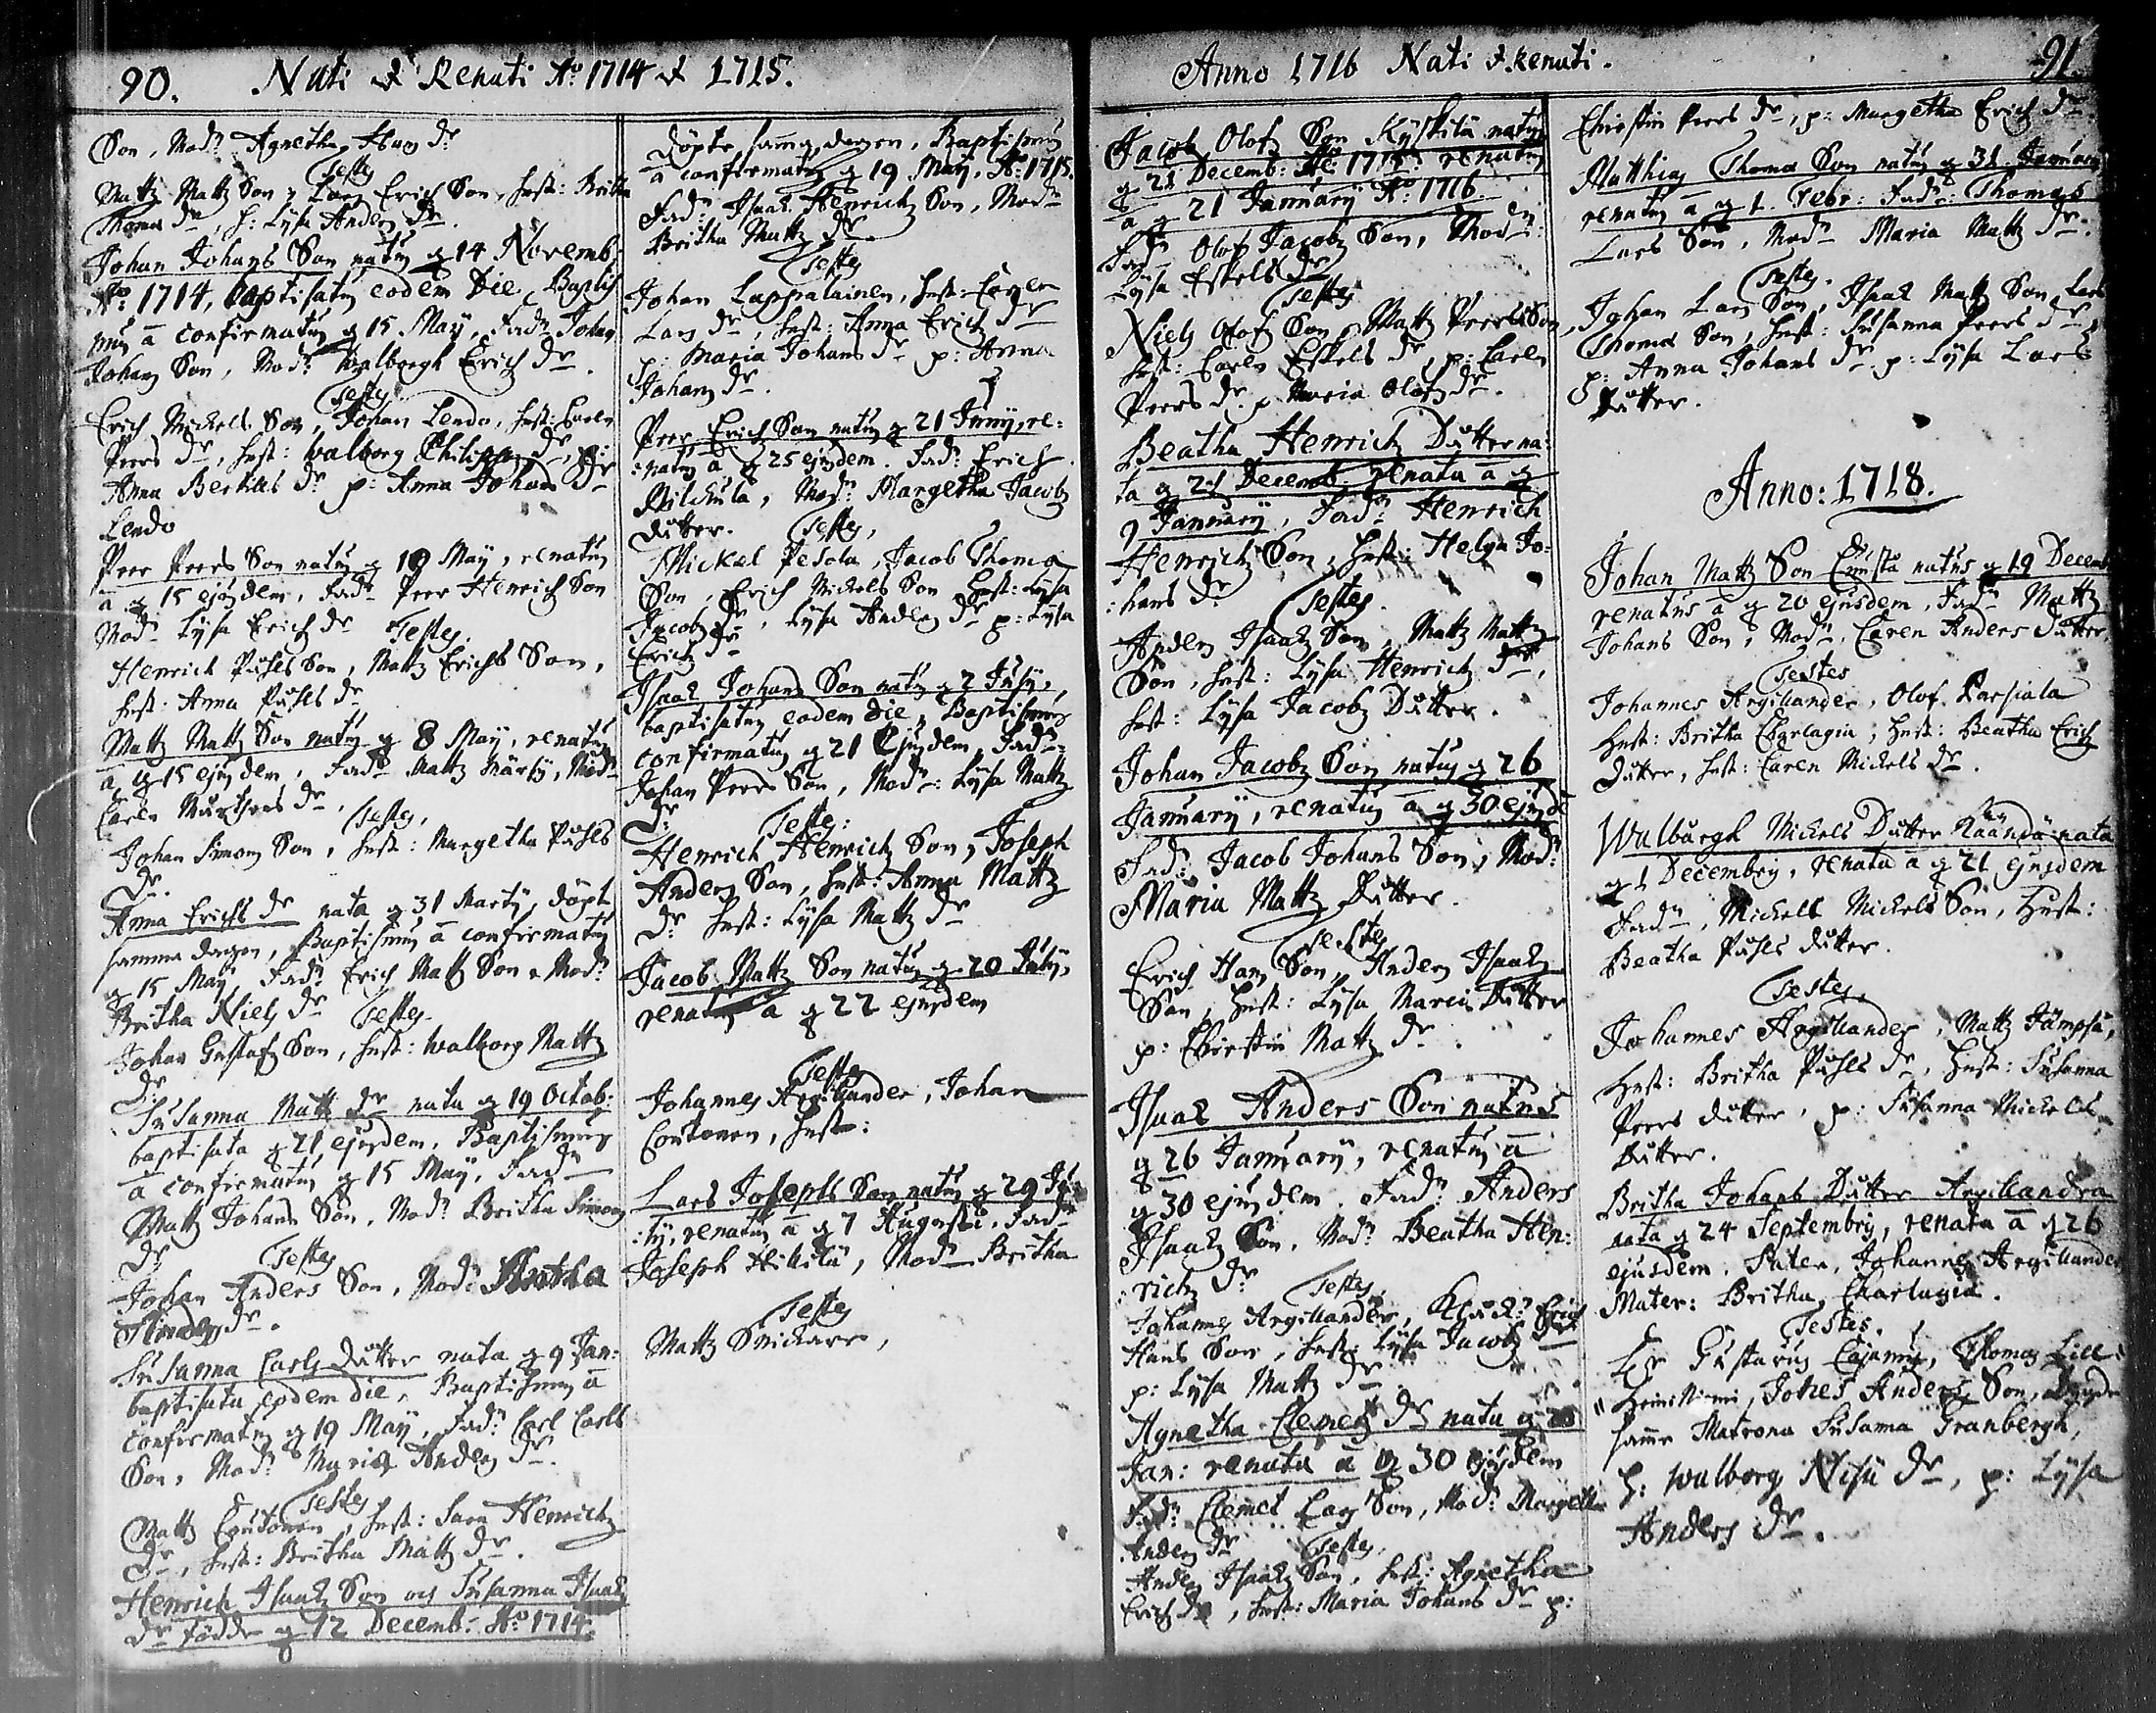 90. Nati & Renati Ao: 1714 & 1715.
Son, Modr: Agnetha Hans dr
Testes
Mattz Mattz Son, Lars Erich Son, hust: Britha
Thomas dr, h: Lysa Anders dr.
Johan Johans Son natus d 14 Novemb:
Ao: 1714, baptisatus eodem Die, Baptis
mus a confirmatus d 15 May, Fadr Johan
Johans Son, Modr Walborgh Erich dr.
Testes
Erich Mickels Son, Johan Lendo, hust: Carin
Peers dr, hust: Walborg Philippus dr, p:
Anna Bertils dr p: Anna Johans dr
Lendo
Peer Peers Son natus d 10 May, renatus
a d 15 ejusdem, Fadr Peer Henrich Son
Modr Lysa Erich dr Testes.
Henrich Påhls Son, Mattz Erichs Son,
hust: Anna Påhls dr
Mattz Mattz Son natus d 8 May, renatus
a d 15 ejusdem, Fadr Mattz Märhy, Modr
Carin Markus dr.
Testes,
Johan Simons Son, hust: Margetha Påhls
dr.
Anna Erichs dr nata d 31 Marty, döpt
samma dagen, Baptismus a confirmatus
d 15 May, Fadr Erich Mattz Son, Modr
Britha Niels dr
Testes.
Johan Gustafz Son, hust: Walborg Mattz
dr
Susanna Mattz dr nata d 19 Octob:
baptisata d 21 ejusdem, Baptismus
a confirmatus d 15 May, Fadr
Mattz Johans Son, Modr Britha Simons
dr
Testes
Johan Anders Son, Modr Britha
Hindrs dr.
Susanna Carls Dutter nata d 9 Jan:
baptisata eodem die, Baptismus a
confirmatus d 19 May, Fadr Carl Carls
Son, Modr Maria Anders dr.
Testes
Mattz Coutonen, hust: Sara Henrich
dr, hust: Britha Mattz dr.
Henrich Isaacks Son och Susanna Isaacks
dr födde d 12 Decemb: Ao: 1714.
döpte samma dagen, Baptismus
a confirmatus d 19 May, Ao: 1715.
Fadr Isaac Henrich Son, Modr
Britha Mattz dr
Testes
Johan Lappalainen, hust: Carin
Lars dr, hust: Anna Erich dr
p: Maria Johans dr p: Anna
Johans dr.
Peer Erich Son natus d 21 Juny, re:
:natus a d 25 ejusdem. Fadr Erich
Wilckula, Modr Margetha Jacobs
Dutter. Testes,
Mickel Pesola, Jacob Thomas
Son, Erich Mickels Son hust: Lysa
Jacobs dr, Lysa Anders dr p: Lysa
Erich dr
Isaac Johans Son natus d 2 July,
baptisatus eodem die, Baptismus
confirmatus d 21 Ejusdem, Fadr
Johan Peers Son, Modr: Lysa Mattz
dr Testes:
Henrich Henrich Son, Joseph
Anders Son, hust: Anna Mattz
dr hust: Lysa Mattz dr
Jacob Mattz Son natus d 20 July,
renatus a d 22 ejusdem
Testes
Johannes Argillander, Johan
Coutonen, hust:
Lars Josephs Son natus d 29 Ju:
:ly, renatus a d 7 Augusti, Fadr
Joseph Hikilä, Modr Britha
Testes
Mattz Snickare,
Anno 1716 Nati & Renati. 91.
Jacob Olofz Son Kyskilä natus
d 21 Decemb: Ao: 1715 renatus
a d 21 January Ao: 1716.
Fadr Olof Jacobs Son, Modr:
Lysa Eskels dr
Testes
Niels Olofz Son, Mattz Peers Son
hust: Carin Eskels dr, p: Carin
Peers dr. p Maria Olofz dr.
Beatha Henrich Dutter na:
ta d 21 Decemb. renata a d
9 January, Fadr Henrich
Henrich Son, hust: Helga Jo:
:hans dr
Testes.
Anders Isaacks Son, Mattz Mattz
Son, hust: Lysa Henrich dr,
hust: Lysa Jacobs Dutter.
Johan Jacobs Son natus d 26
January, renatus a d 30 ejusd
Fadr Jacob Johans Son, Modr
Maria Mattz Dutter.
Testes
Erich Hans Son, Anders Isaacks
Son, hust: Lysa Marci Dutter
p: Christin Mattz dr.
Isaac Anders Son natus
d 26 January, renatus a
d 30 ejusdem. Fadr Anders
Isaacks Son, Modr Beatha Hen:
:rich dr Testes,
Johannes Argillander, Kluck: Erich
Hans Son, hust: Lysa Jacobs dr
p: Lysa Mattz dr
Agnetha Clemetz dr nata d 28
Jan: renata a d 30 ejusdem
Fadr Clemet Lars Son, Modr Margetha
Anders dr Testes.
Anders Isaacks Son, hust: Agnetha
Erich dr, hust: Maria Johans dr p:
Christin Peers dr, p: Margetha Erich dr
Matthias Thomas Son natus d 31 January
renatus a d 1. Febr: Fadr Thomas
Lars Son, Modr Maria Mattz dr.
Testes.
Johan Lars Son, Isaac Mattz Son, Lars
Thomas Son, hust: Susanna Peers dr
p: Anna Johans dr. p: Lysa Lars
Dutter.
Anno: 1718.
Johan Mattz Son Cuusta natus d 19 Decemb
renatus a d 20 ejusdem, Fadr Mattz
Johans Son, Modr. Caren Anders Dutter
Testes
Johannes Argillander, Olof Karsiala
Hust: Britha Charlagia, Hust: Beatha Erich
Dutter, hust: Caren Mickels dr.
Walborgh Mickels Dutter Käändä nata
d 1 Decembris, renata a d 21 ejusdem
Fadr, Mickell Mickels Son, Hust:
Beatha Påhls dutter.
Testes.
Johannes Argillander, Mattz Jämpsä,
Hust: Britha Påhls dr, Hust: Susanna
Peers dutter, p: Susanna Mickels
Dutter.
Britha Johans Dutter Argillandra
nata d 24 Septembris, renata a d 26
ejusdem. Pater, Johannes Argillander
Mater: Britha Charlagia.
Testes.
Er Gustavus Cajanus, Thomas Lill:
Heinikuoni, Johes Anders Son, Dygde
samme Matrona Susanna Granbergh,
H: Walborg Nisu dr, p: Lysa
Anders dr.